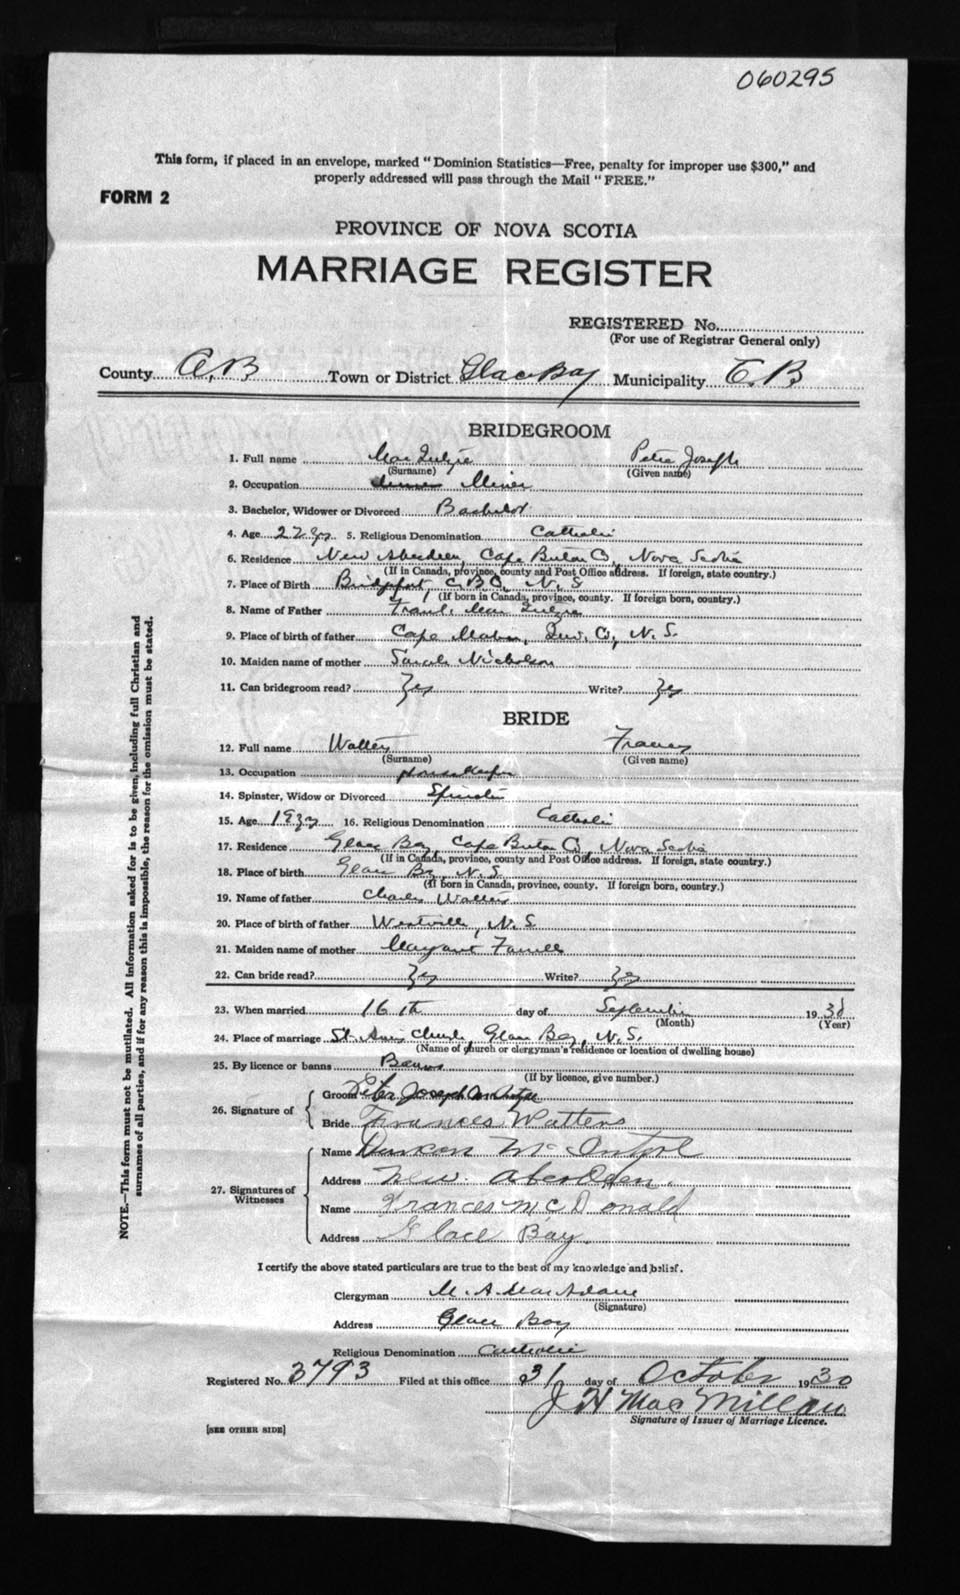 060295
This form, if placed in an envelope, marked "Dominion Statistics—Free, penalty for improper use $300," and
properly addressed will pass through the Mail "FREE."
FORM 2
PROVINCE OF NOVA SCOTIA
MARRIAGE REGISTER
REGISTERED No.
(For use of Registrar General only)
County C.B Town or District Glace Bay Municipality C.B
BRIDEGROOM
1. Full name Peter Joseph
(Surname) (Given name)
2. Occupation Miner
3. Bachelor, Widower or Divorced Bachelor
4. Age 22 yrs 5. Religious Denomination Catholic
6. Residence New Aberdeen, Cape Breton Co, Nova Scotia
(If in Canada, province, county and Post Office address. If foreign, state country.)
7. Place of Birth Bridgeport, C.B.C., N.S
(If born in Canada, province, county. If foreign born, country.)
8. Name of Father
9. Place of birth of father Cape Mabou, Inv. Co, N.S.
10. Maiden name of mother Sarah Nicholson
11. Can bridegroom read? Yes Write? Yes
BRIDE
12. Full name Watters Frances
(Surname) (Given name)
13. Occupation Housekeeper
14. Spinster, Widow or Divorced Spinster
15. Age 19 yrs 16. Religious Denomination Catholic
17. Residence Glace Bay, Cape Breton Co, Nova Scotia
(If in Canada, province, county and Post Office address. If foreign, state country.)
18. Place of birth Glace Bay N.S.
(If born in Canada, province, county. If foreign born, country.)
19. Name of father Charles Watters
20. Place of birth of father Westville, N.S.
21. Maiden name of mother Margaret Farrell
22. Can bride read? Yes Write? Yes
23. When married 16th day of September 1930
(Month) (Year)
24. Place of marriage St. Anns Church, Glace Bay, N.S.
(Name of church or clergyman's residence or location of dwelling house)
25. By licence or banns Banns
(If by licence, give number.)
26. Signature of
Groom Peter Joseph McIntyre
Bride Frances Watters
27. Signatures of Witnesses
Name Duncan McIntyre
Address New Aberdeen.
Name Frances McDonald
Address Glace Bay.
I certify the above stated particulars are true to the best of my knowledge and belief.
Clergyman M. A. MacAdam
(Signature)
Address Glace Bay
Religious Denomination Catholic
Registered No. 3793 Filed at this office 31 day of October 1930
J H MacMillan
Signature of Issuer of Marriage Licence.
[SEE OTHER SIDE]
NOTE.—This form must not be mutilated. All information asked for is to be given, including full Christian and
surnames of all parties, and if for any reason this is impossible, the reason for the omission must be stated.